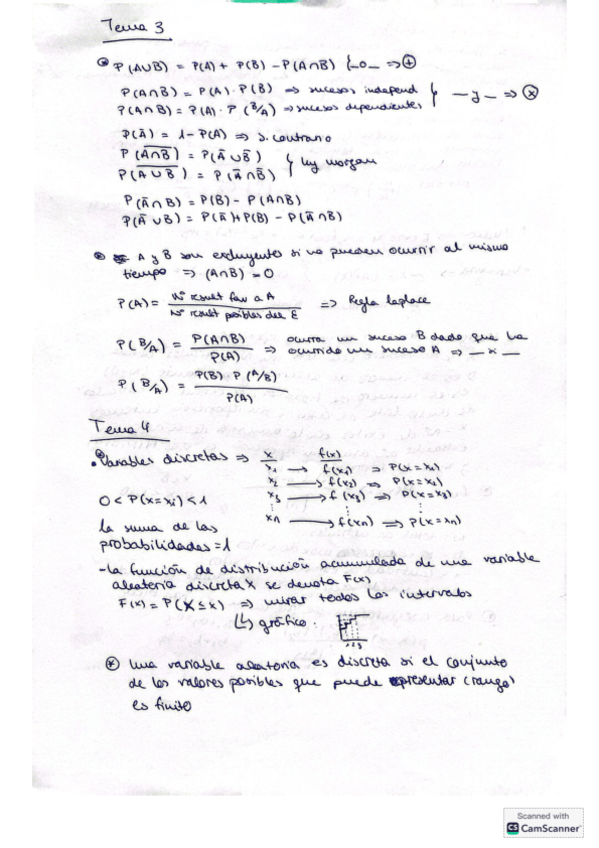 Tema 3
P(A∪B) = P(A) + P(B) - P(A∩B) {_o_ => ⊕
P(A∩B) = P(A) · P(B) => sucesos independ
P(A∩B) = P(A) · P(B/A) => sucesos dependientes } — y — => ⊗
P(Ā) = 1 - P(A) => s. contrario
P(A̅∩̅B̅) = P(Ā ∪ B̄)
P(A̅∪̅B̅) = P(Ā ∩ B̄) } ley morgan
P(Ā ∩ B) = P(B) - P(A∩B)
P(Ā ∪ B) = P(Ā) + P(B) - P(Ā ∩ B)
A y B son excluyentes si no pueden ocurrir al mismo
tiempo => (A∩B) = 0
P(A) = Nº result fav a A / Nº result posibles del E => Regla laplace
P(B/A) = P(A∩B) / P(A) => ocurra un suceso B dado que ha
ocurrido un suceso A => — x —
P(B/A) = P(B) · P(A/B) / P(A)
Tema 4
Variables discretas => x f(x)
x1 → f(x1) => P(X = x1)
x2 → f(x2) => P(X = x2)
0 < P(X = xi) < 1 x3 → f(x3) => P(X = x3)
⋮ ⋮ ⋮
la suma de las xn → f(xn) => P(X = xn)
probabilidades = 1
- la función de distribución acumulada de una variable
aleatoria discreta X se denota F(x)
F(x) = P(X ≤ x) => mirar todos los intervalos
(↳) gráfico:
1 2 3
(*) Una variable aleatoria es discreta si el conjunto
de los valores posibles que puede representar (rango)
es finito
Scanned with
CS CamScanner